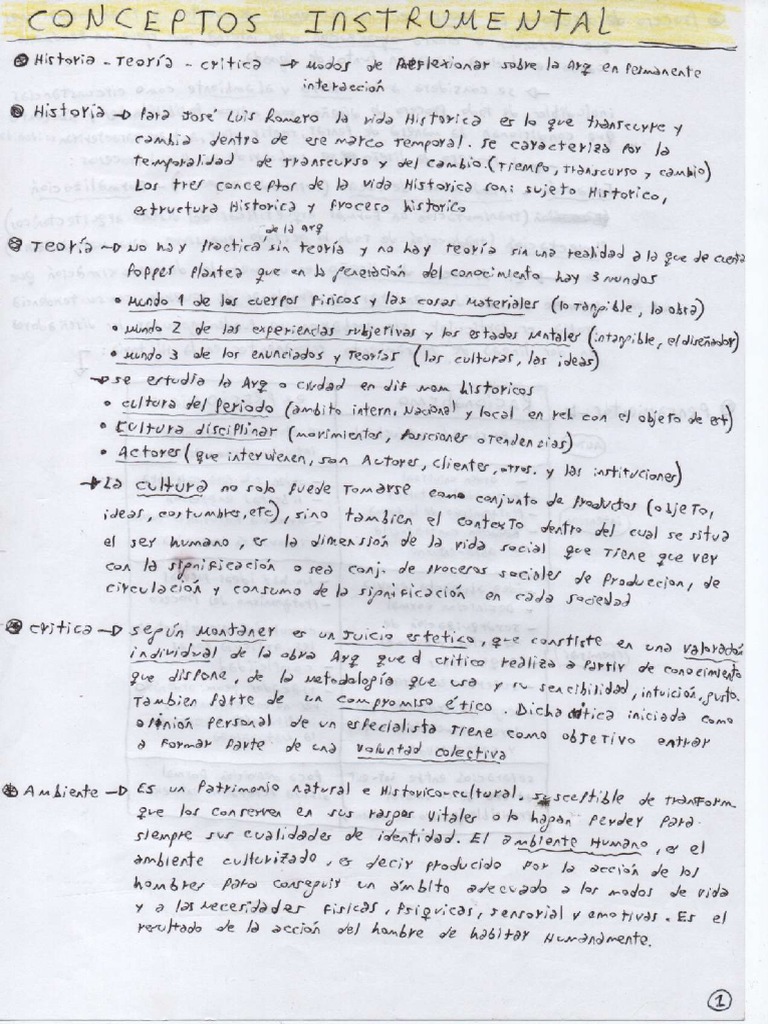 CONCEPTOS INSTRUMENTAL
Historia - Teoría - critica → Modos de Reflexionar sobre la Arq en Permanente
interacción
Historia → Para José Luis Romero la vida Historica es lo que transcurre y
cambia dentro de ese marco Temporal. se caracteriza por la
temporalidad de transcurso y del cambio. (Tiempo, Transcurso y cambio)
Los tres conceptos de la vida Historica son: sujeto Historico,
estructura Historica y Proceso historico
de la Arq
Teoría → No hay Practica sin teoría y no hay Teoría sin una realidad a la que de cuenta
Popper Plantea que en la generación del conocimiento hay 3 mundos
• Mundo 1 de los cuerpos fisicos y las cosas Materiales (lo Tangible, la obra)
• Mundo 2 de las experiencias subjetivas y los estados Mentales (intangible, el diseñador)
• Mundo 3 de los enunciados y Teorías (las culturas, las ideas)
→ se estudia la Arq o ciudad en dis mom historicos
• cultura del Periodo (ambito intern, Nacional y local en rel con el objeto de est)
• Cultura disciplinar (movimientos, Posiciones o Tendencias)
• Actores (que intervienen, son Actores, clientes, otros. y las instituciones)
→ La cultura no solo puede Tomarse como conjunto de Productos (objeto,
ideas, costumbres, etc), sino tambien el contexto dentro del cual se situa
el ser humano, es la dimensión de la vida social que Tiene que ver
con la significación o sea conj. de Procesos sociales de Produccion, de
circulación y consumo de la significación en cada sociedad
Critica → según Montaner es un Juicio estetico, que constiste en una valoración
individual de la obra Arq que el critico realiza a Partir de conocimiento
que dispone, de la metodología que usa y su sencibilidad, intuición, gusto.
Tambien Parte de un compromiso ético. Dicha critica iniciada como
opinión Personal de un especialista Tiene como objetivo entrar
a formar parte de una voluntad colectiva
Ambiente → Es un Patrimonio natural e Historico-cultural, susceptible de transform.
que los conserven en sus rasgos vitales o lo hagan Perder Para
siempre sus cualidades de identidad. El ambiente Humano, es el
ambiente culturizado, es decir producido Por la acción de los
hombres Para conseguir un ámbito adecuado a los modos de vida
y a las necesidades fisicas, Psiquicas, sensorial y emotivas. Es el
resultado de la acción del hombre de habitar Humanamente.
1